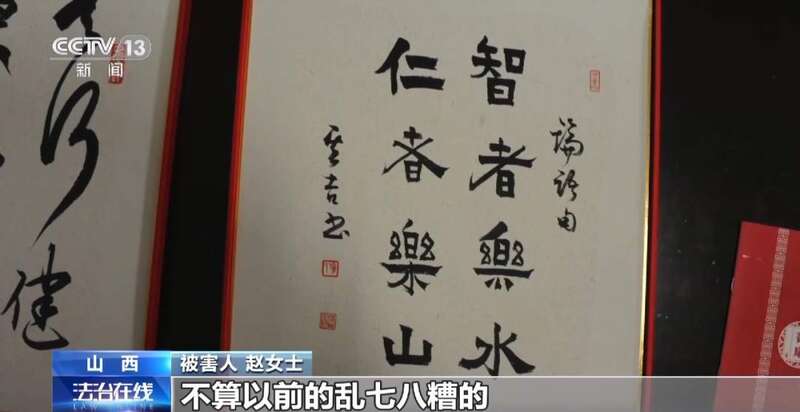 CCTV 13
新闻
論語句
智者樂水
仁者樂山
行健
山西
被害人 赵女士
法治在线
不算以前的乱七八糟的